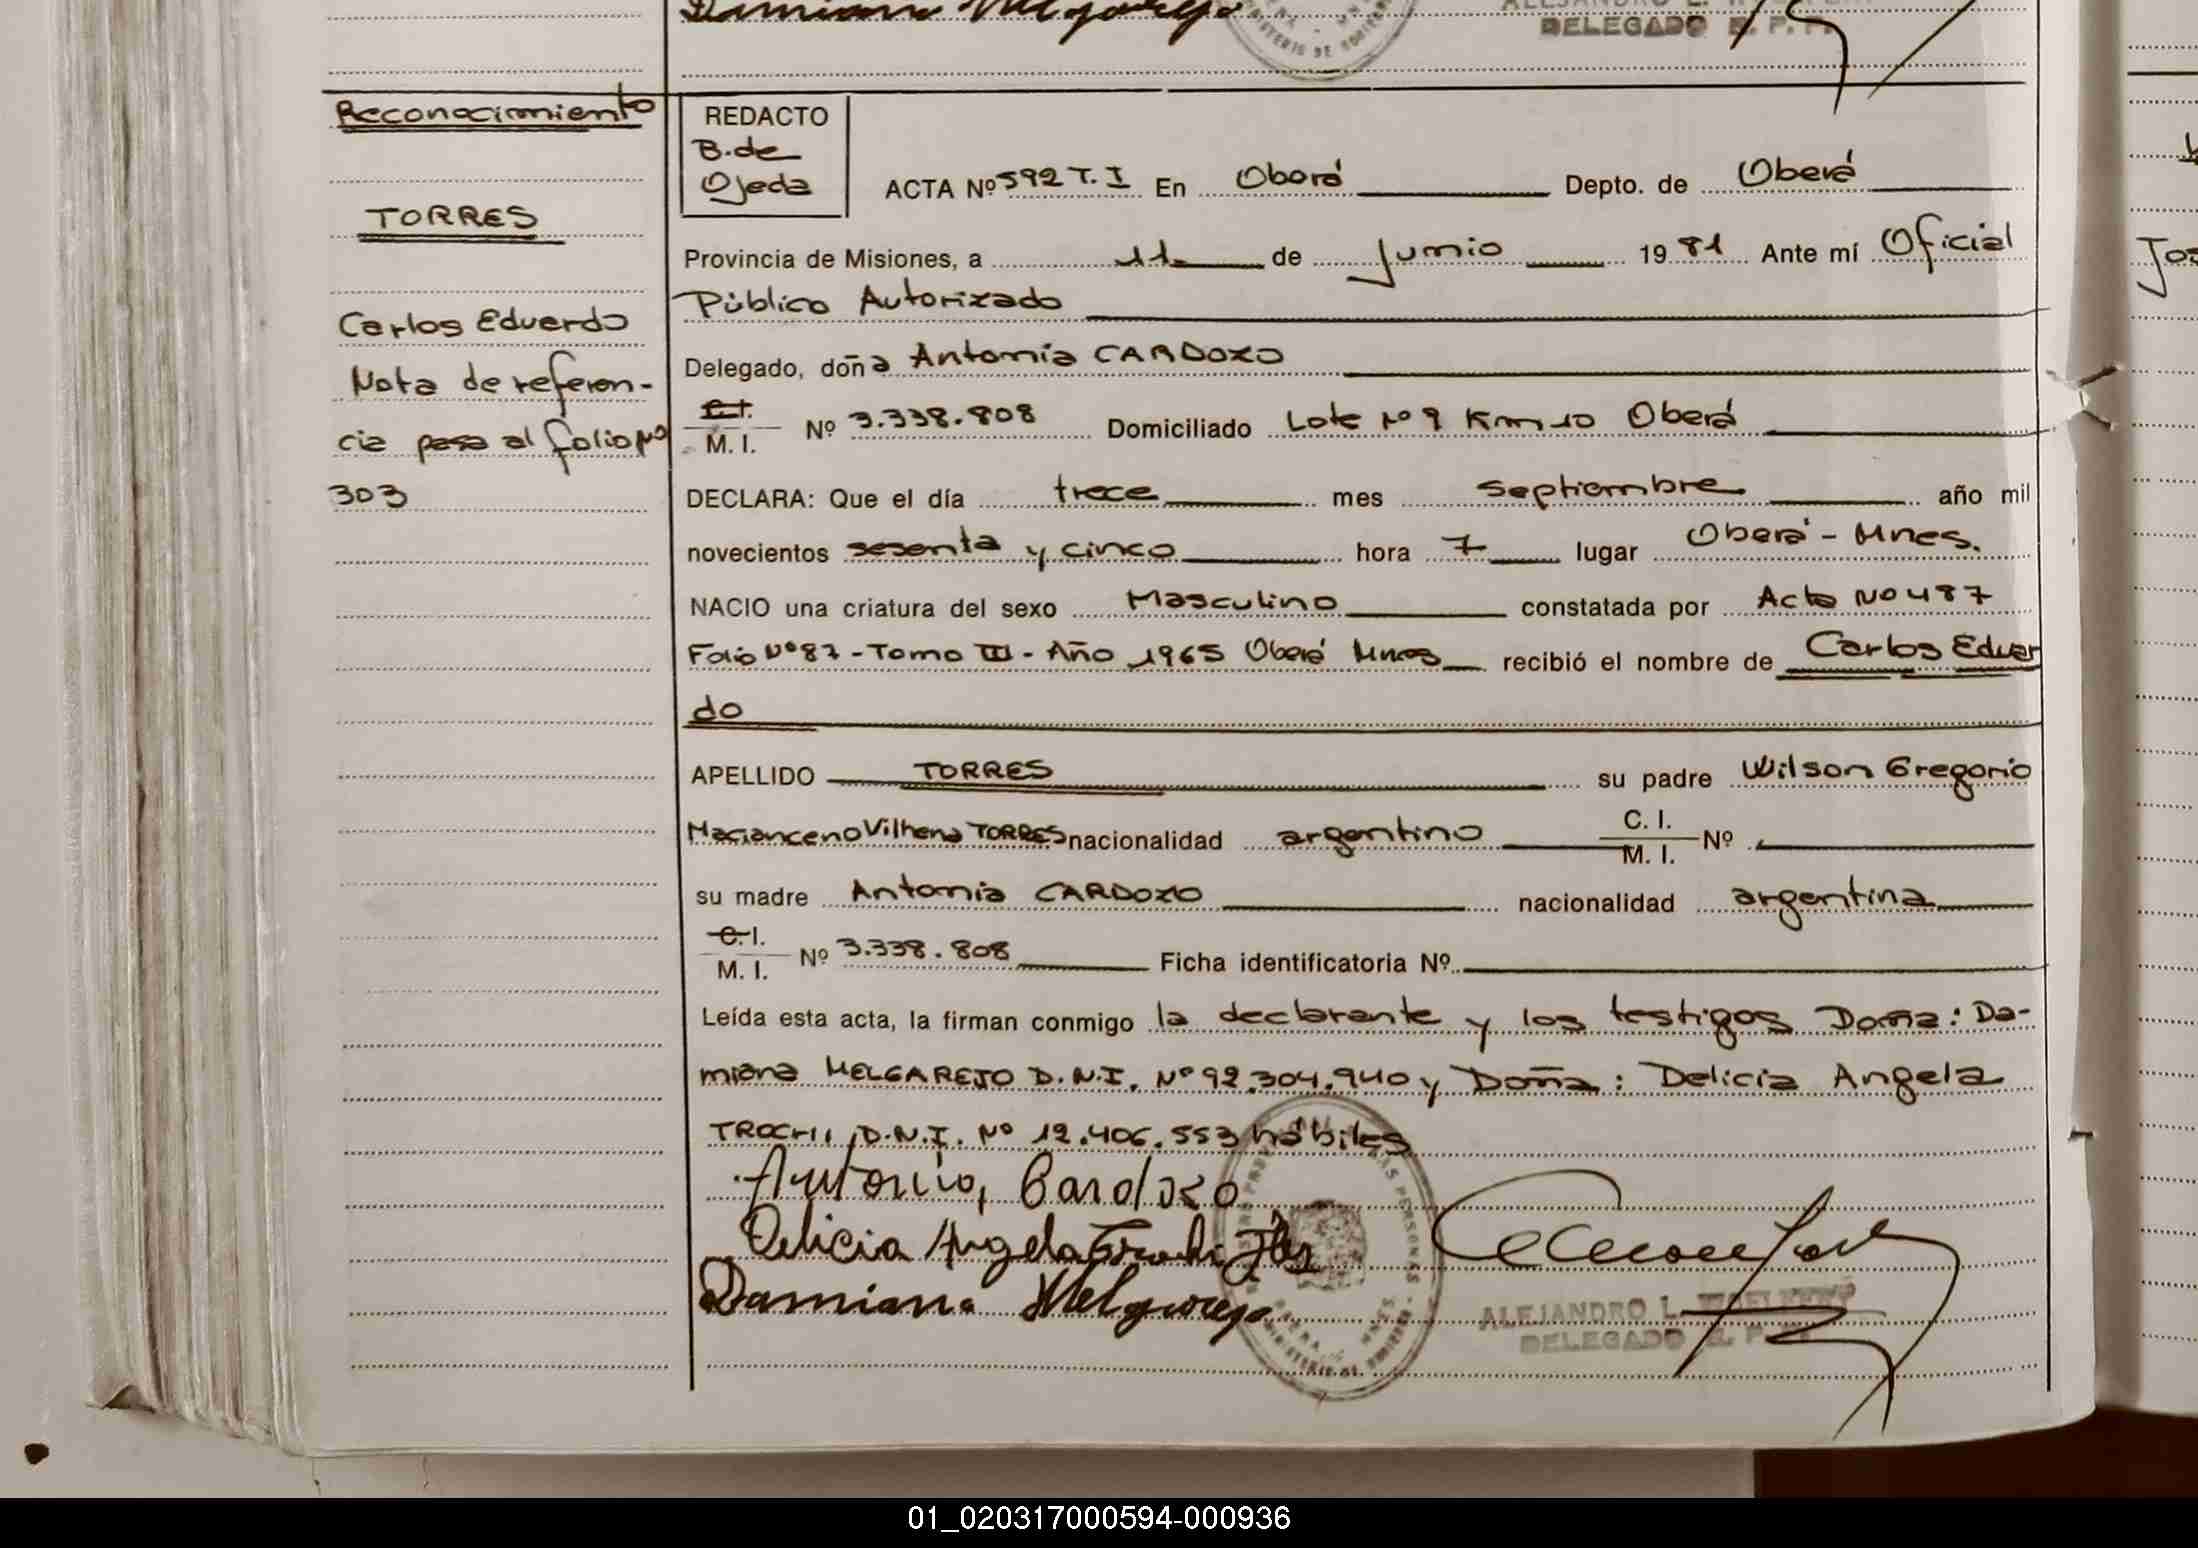 Damiana Melgarejo
DELEGADO E. P. T.
Reconocimiento
TORRES
Carlos Eduardo
Nota de referen-
cia pasa al folio Nº
303
REDACTO
B. de
Ojeda
ACTA Nº 592 T. I En Oberá Depto. de Oberá
Provincia de Misiones, a 11 de Junio 1981 Ante mí Oficial
Público Autorizado
Delegado, doña Antonia CARDOZO
C.I.
M. I. Nº 3.338.808 Domiciliado Lote Nº 9 Km 10 Oberá
DECLARA: Que el día trece mes septiembre año mil
novecientos sesenta y cinco hora 7 lugar Oberá - Mnes.
NACIO una criatura del sexo Masculino constatada por Acta Nº 487
Folio Nº 87 - Tomo III - Año 1965 Oberá Mnes recibió el nombre de Carlos Eduar
do
APELLIDO TORRES su padre Wilson Gregorio
Macianceno Vilhena TORRES nacionalidad argentino C. I.
M. I. Nº
su madre Antonia CARDOZO nacionalidad argentina
C. I.
M. I. Nº 3.338.808 Ficha identificatoria Nº
Leída esta acta, la firman conmigo la declarante y los testigos Doña: Da-
miana MELGAREJO D.N.I. Nº 92.304.940 y Doña: Delicia Angela
TROCHI, D.N.I. Nº 12.406.553 hábiles
Antonia Cardozo
Delicia Angela Trochi
Damiana Melgarejo
ALEJANDRO L.
DELEGADO E. P. T.
01_020317000594-000936